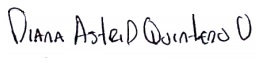 Diana Astrid Quintero O